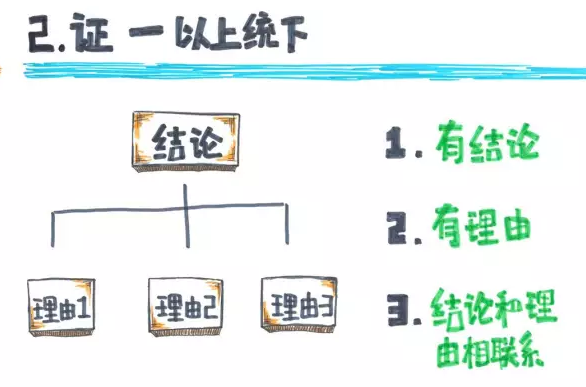 2.证 一以上统下
结论
理由1
理由2
理由3
1. 有结论
2. 有理由
3. 结论和理
由相联系